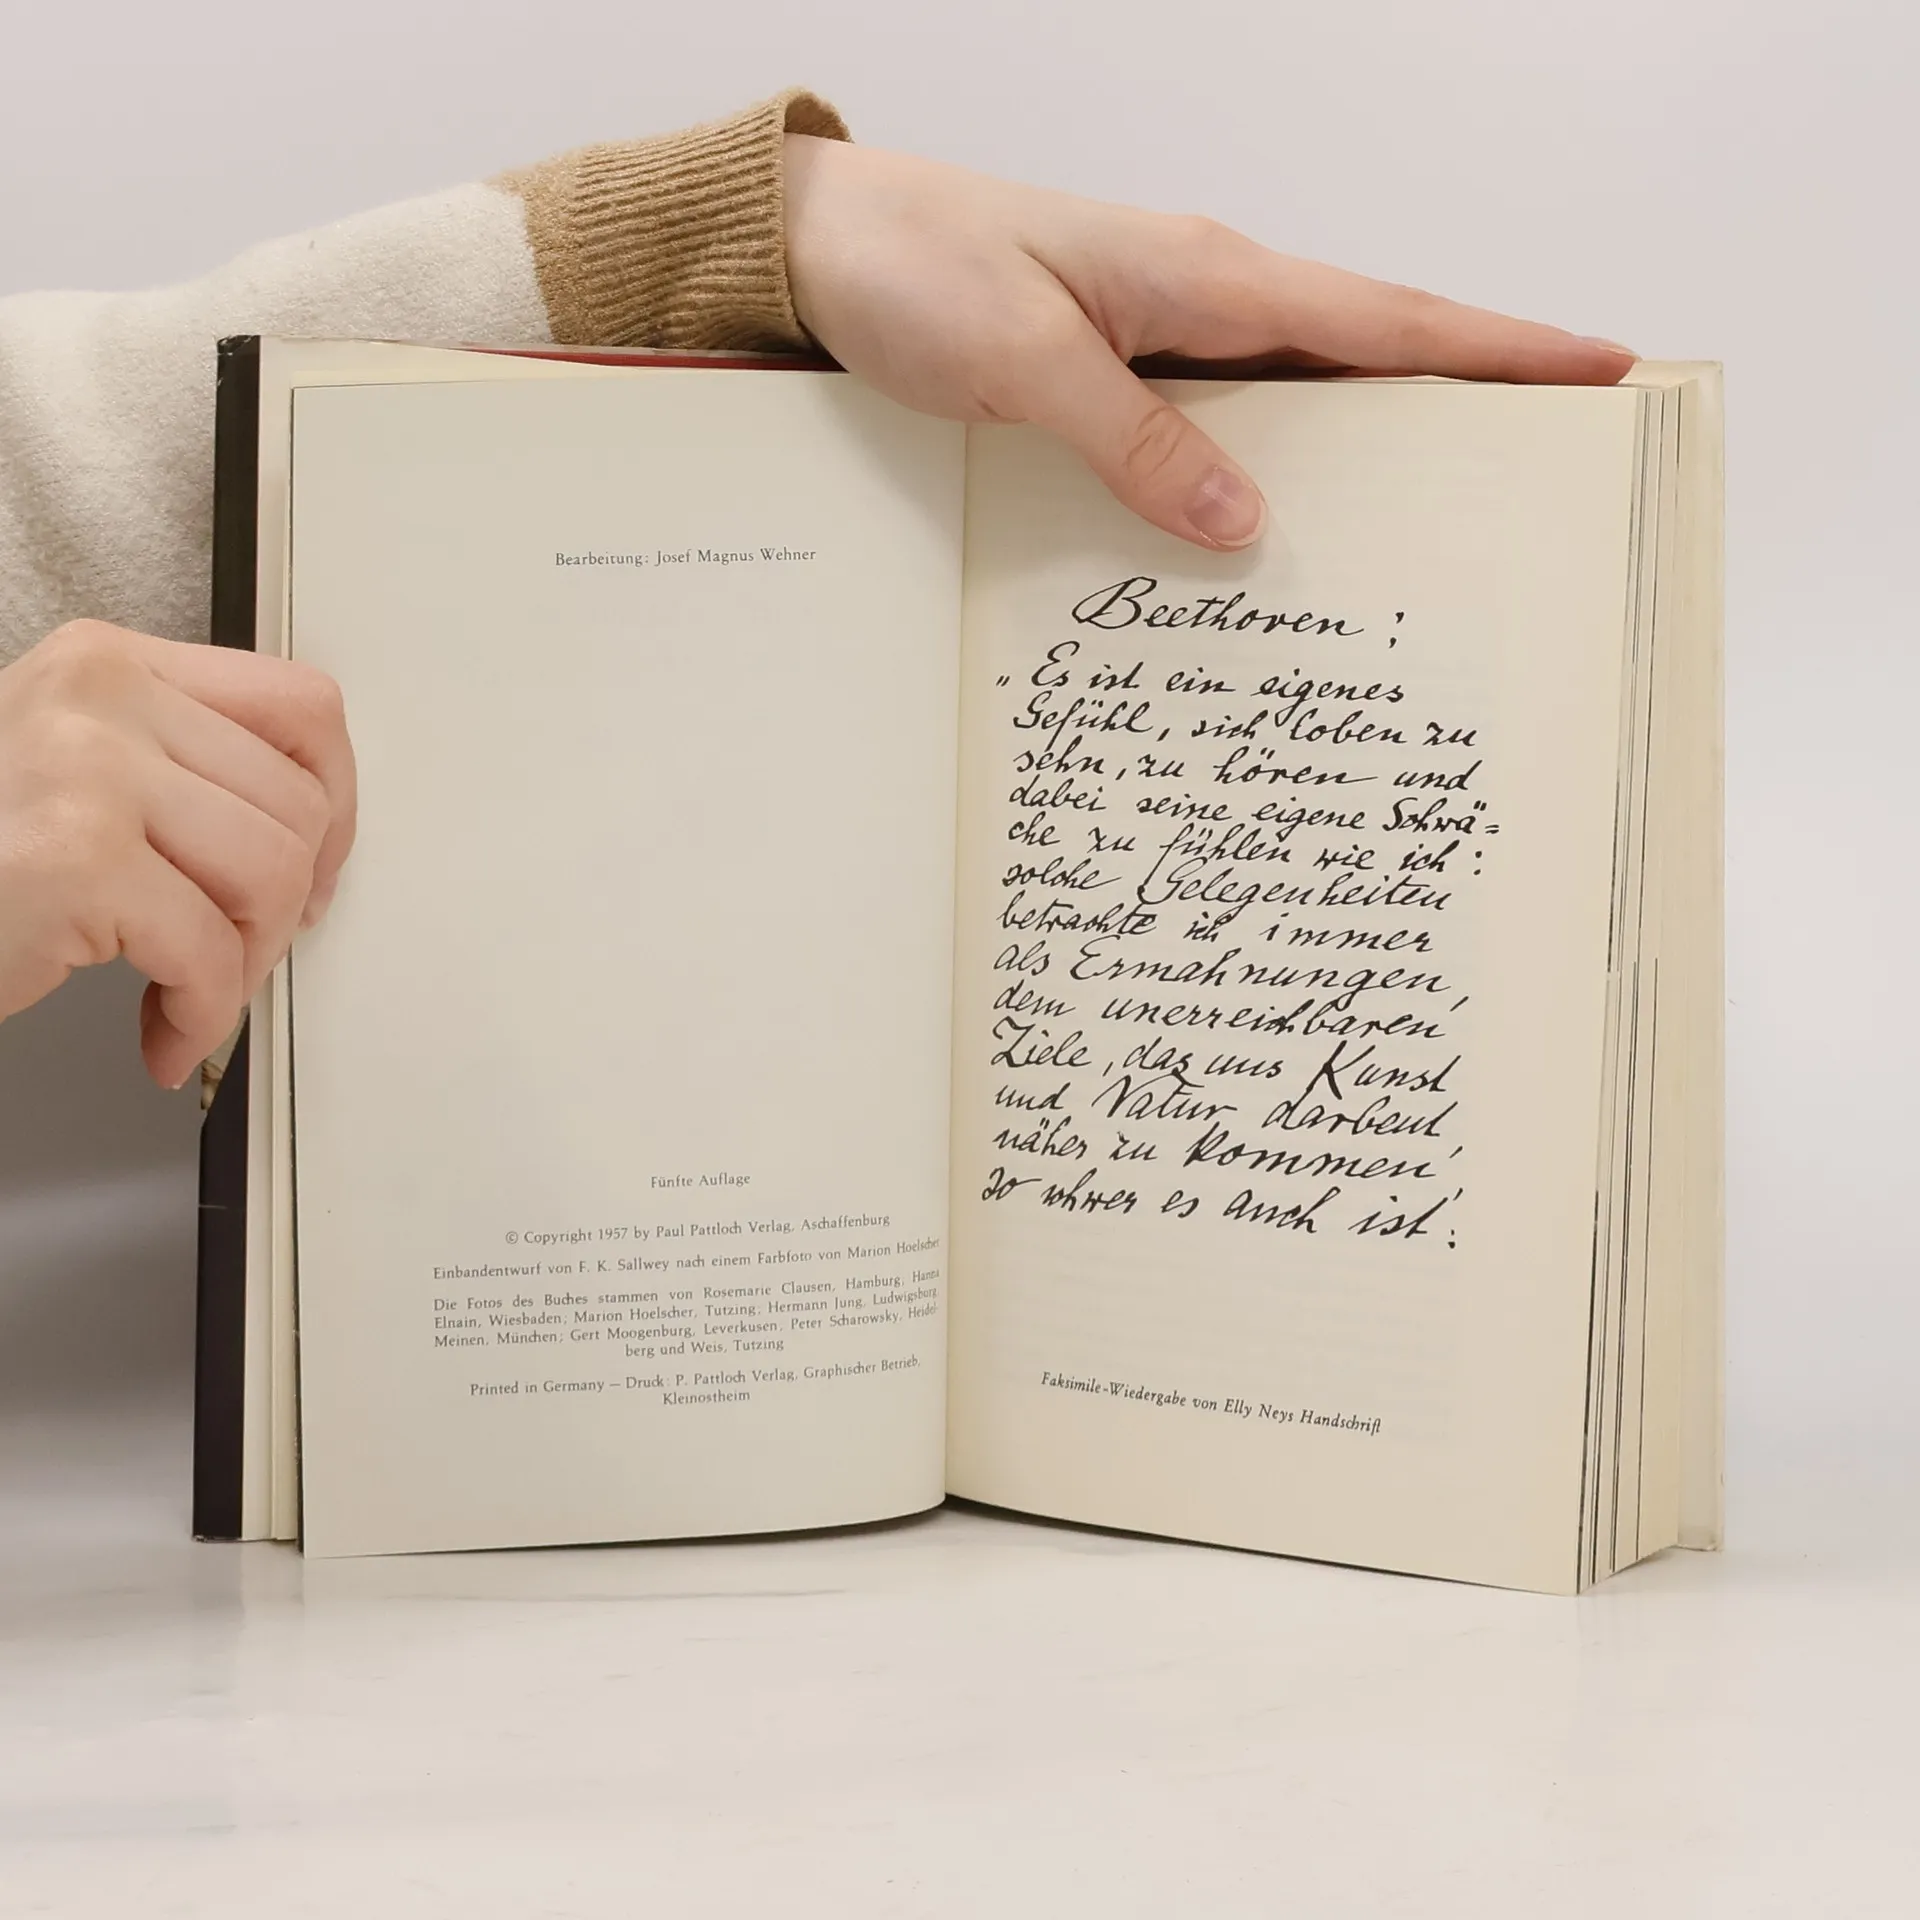 Bearbeitung: Josef Magnus Wehner
Fünfte Auflage
© Copyright 1957 by Paul Pattloch Verlag, Aschaffenburg
Einbandentwurf von F. K. Sallwey nach einem Farbfoto von Marion Hoelscher
Die Fotos des Buches stammen von Rosemarie Clausen, Hamburg, Hanna
Elnain, Wiesbaden; Marion Hoelscher, Tutzing; Hermann Jung, Ludwigsburg,
Meinen, München; Gert Moogenburg, Leverkusen, Peter Scharowsky, Heidel-
berg und Weis, Tutzing
Printed in Germany — Druck: P. Pattloch Verlag, Graphischer Betrieb,
Kleinostheim
Beethoven :
„Es ist ein eigenes
Gefühl, sich loben zu
sehn, zu hören und
dabei seine eigene Schwä=
che zu fühlen wie ich :
solche Gelegenheiten
betrachte ich immer
als Ermahnungen,
dem unerreichbaren
Ziele, das uns Kunst
und Natur darbeut,
näher zu kommen,
so schwer es auch ist!
Faksimile-Wiedergabe von Elly Neys Handschrift